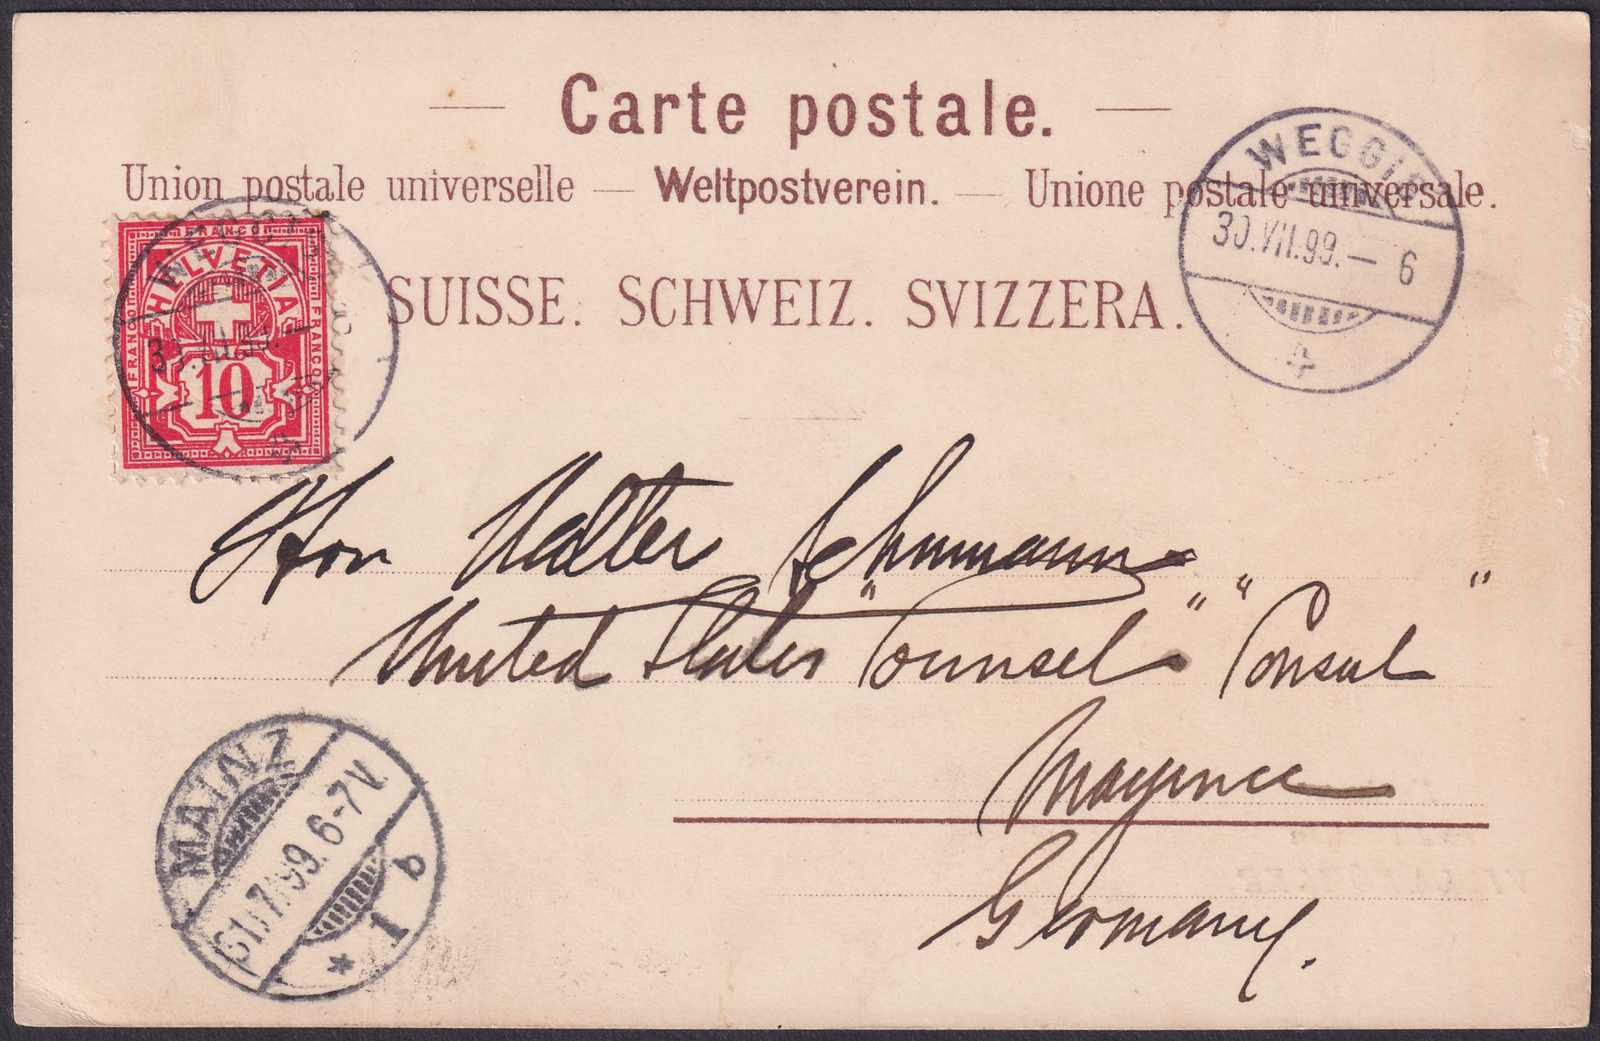 Carte postale.
Union postale universelle — Weltpostverein. — Unione postale universale.
SUISSE. SCHWEIZ. SVIZZERA.
WEGGIS
30.VII.99.— 6
FRANCO
HELVETIA
FRANCO
FRANCO
10
Hon Walter Schumann
United States "Counsel" "Consul"
Mayence
Germany.
MAINZ
31.7.99. 6-7V.
* 1 b